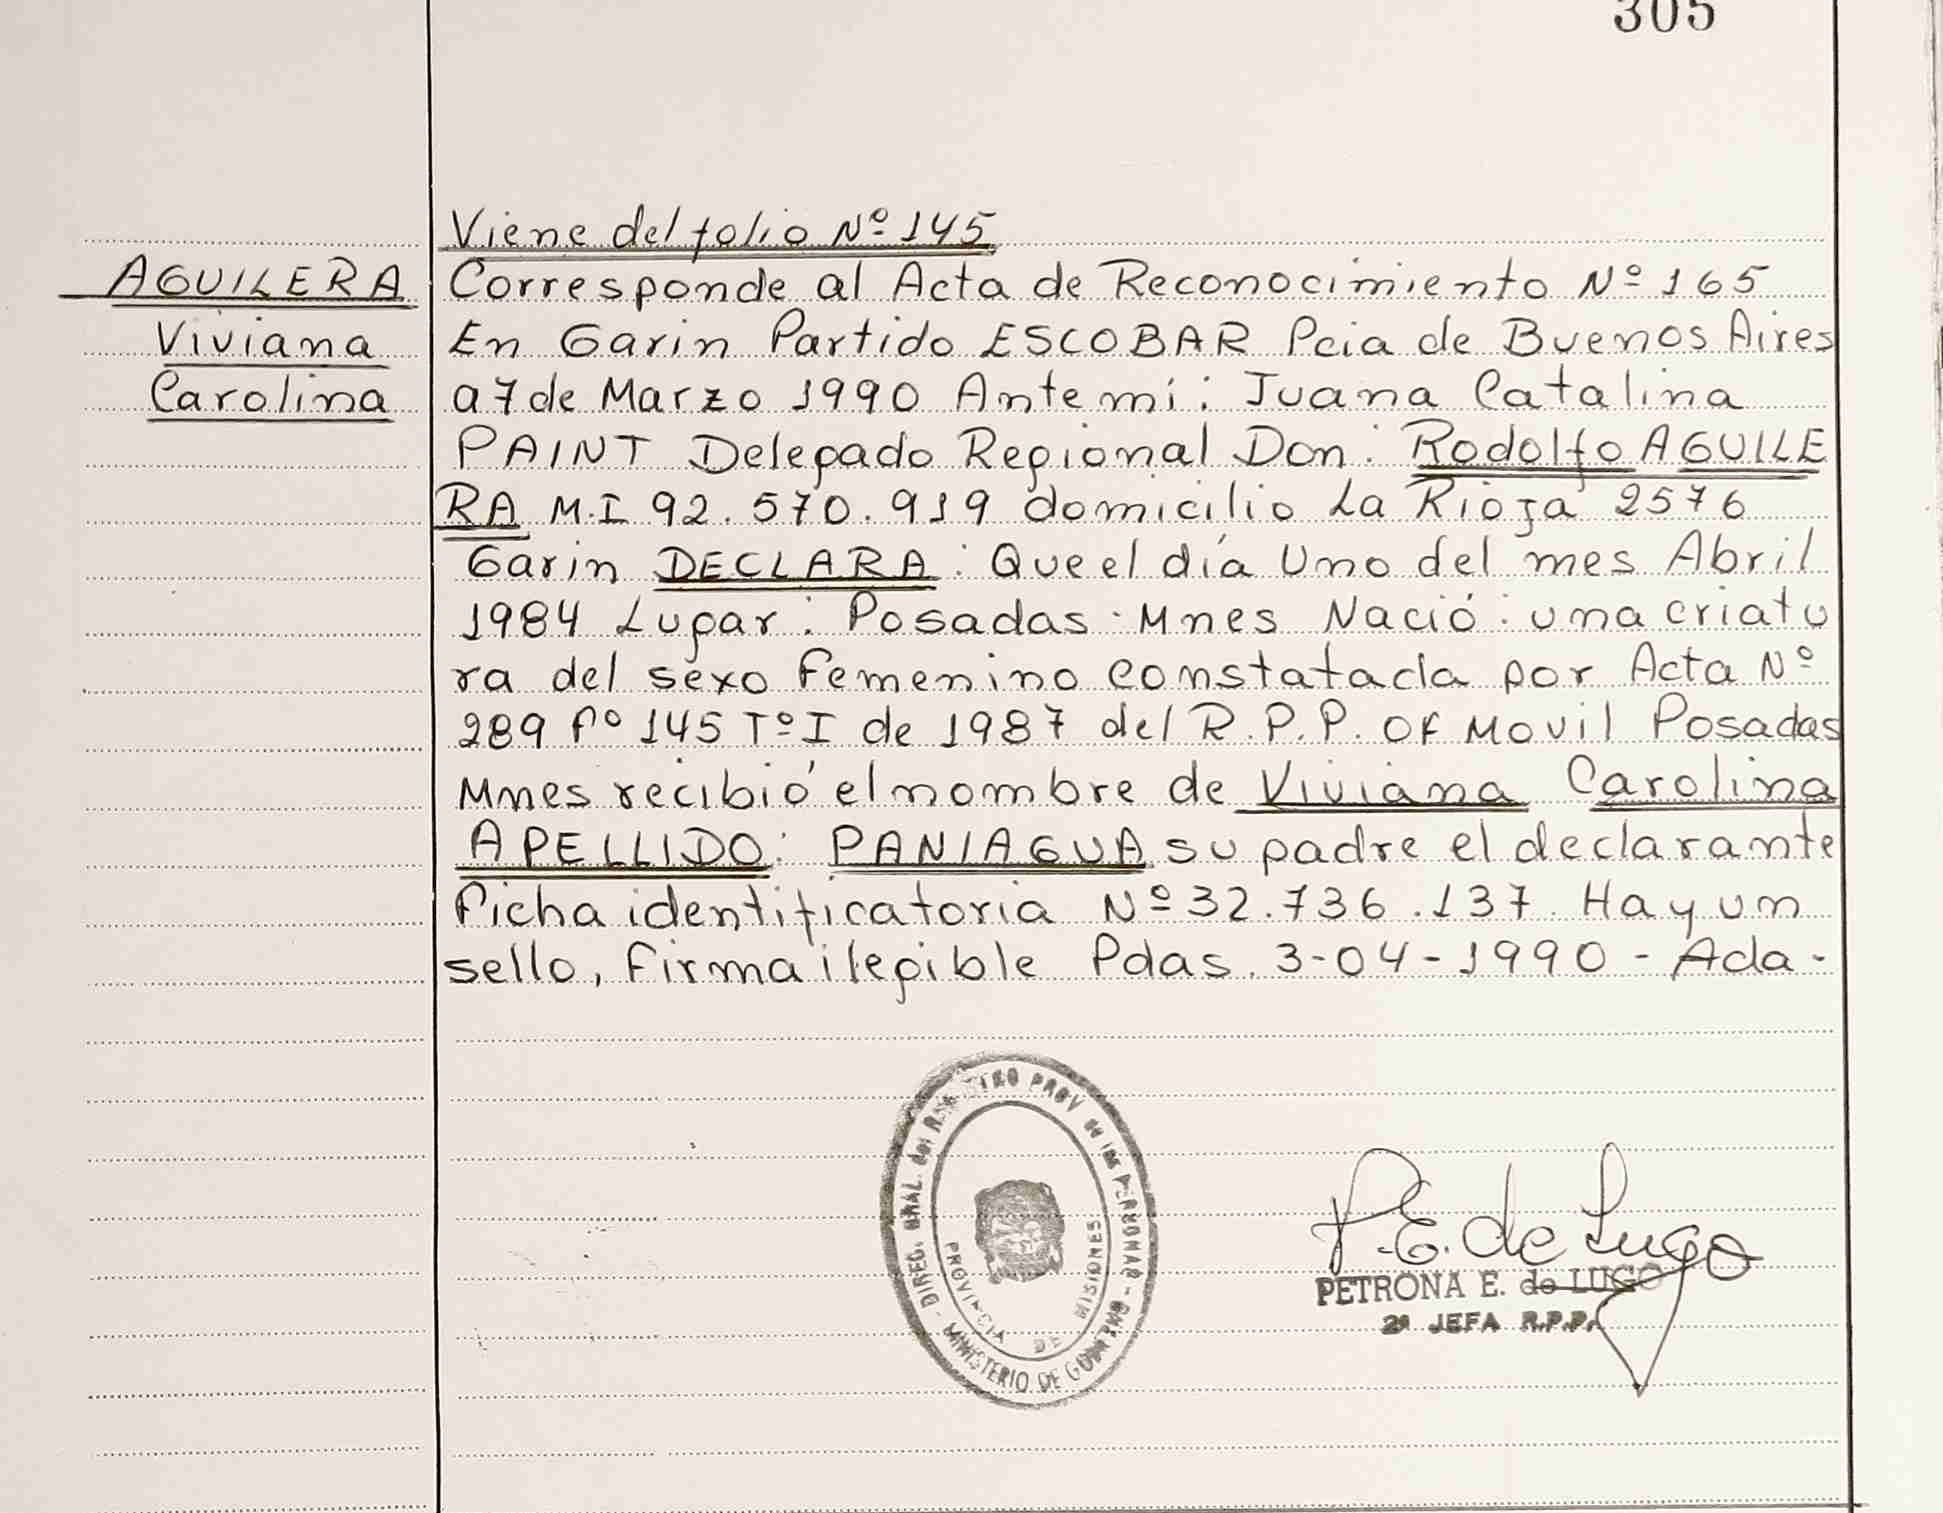 305
Viene del folio Nº 145
AGUILERA
Viviana
Carolina
Corresponde al Acta de Reconocimiento Nº 165
En Garin Partido ESCOBAR Pcia de Buenos Aires
a 7 de Marzo 1990 Ante mi: Juana Catalina
PAINT Delegado Regional Don: Rodolfo AGUILE
RA M.I 92.570.919 domicilio La Rioja 2576
Garin DECLARA: Que el día Uno del mes Abril
1984 Lugar: Posadas - Mnes Nació: una criatu
ra del sexo Femenino constatada por Acta Nº
289 Fº 145 Tº I de 1987 del R.P.P. OF Movil Posadas
Mnes recibió el nombre de Viviana Carolina
APELLIDO: PANIAGUA su padre el declarante
Ficha identificatoria Nº 32.736.137 Hay un
sello, Firma ilegible Pdas. 3-04-1990 - Ada-
DIREC. GRAL. del REGISTRO PROV de las PERSONAS - MINISTERIO DE GOBIERNO -
PROVINCIA DE MISIONES
P.E. de Lugo
PETRONA E. de LUGO
2ª JEFA R.P.P.